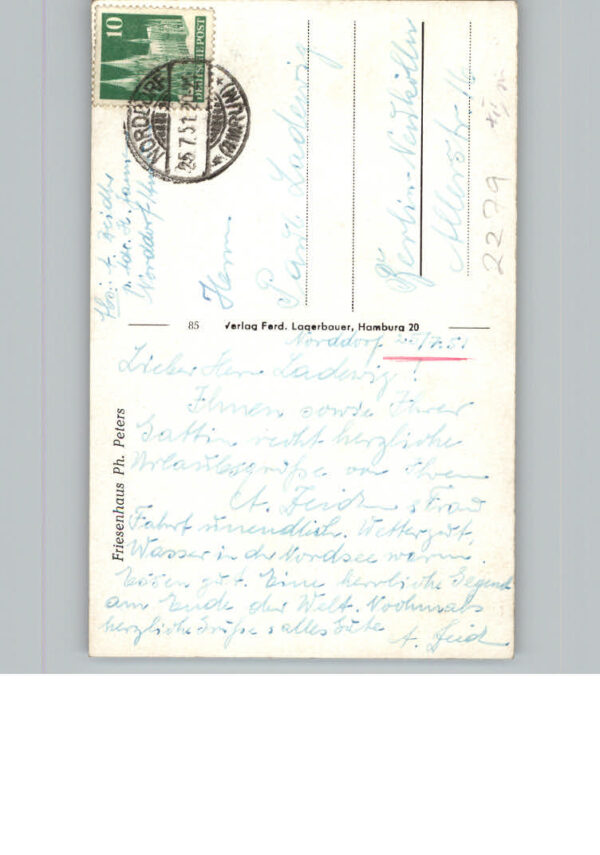 10
DEUTSCHE POST
NORDDORF
25.7.51
(AMRUM)
Norddorf
Herrn
Paul Ladewig
Berlin-Neukölln
Allerstr.
2279
85
Verlag Ferd. Lagerbauer, Hamburg 20
Friesenhaus Ph. Peters
Norddorf 25/7.51
Lieber Herr Ladewig!
Ihnen sowie Ihrer
Gattin recht herzliche
Urlaubsgrüße von Ihrem
Frau
Fahrt unendlich. Wetter gut.
Wasser in der Nordsee warm.
Essen gut. Eine herrliche Gegend
am Ende der Welt. Nochmals
herzliche Grüße alles Gute